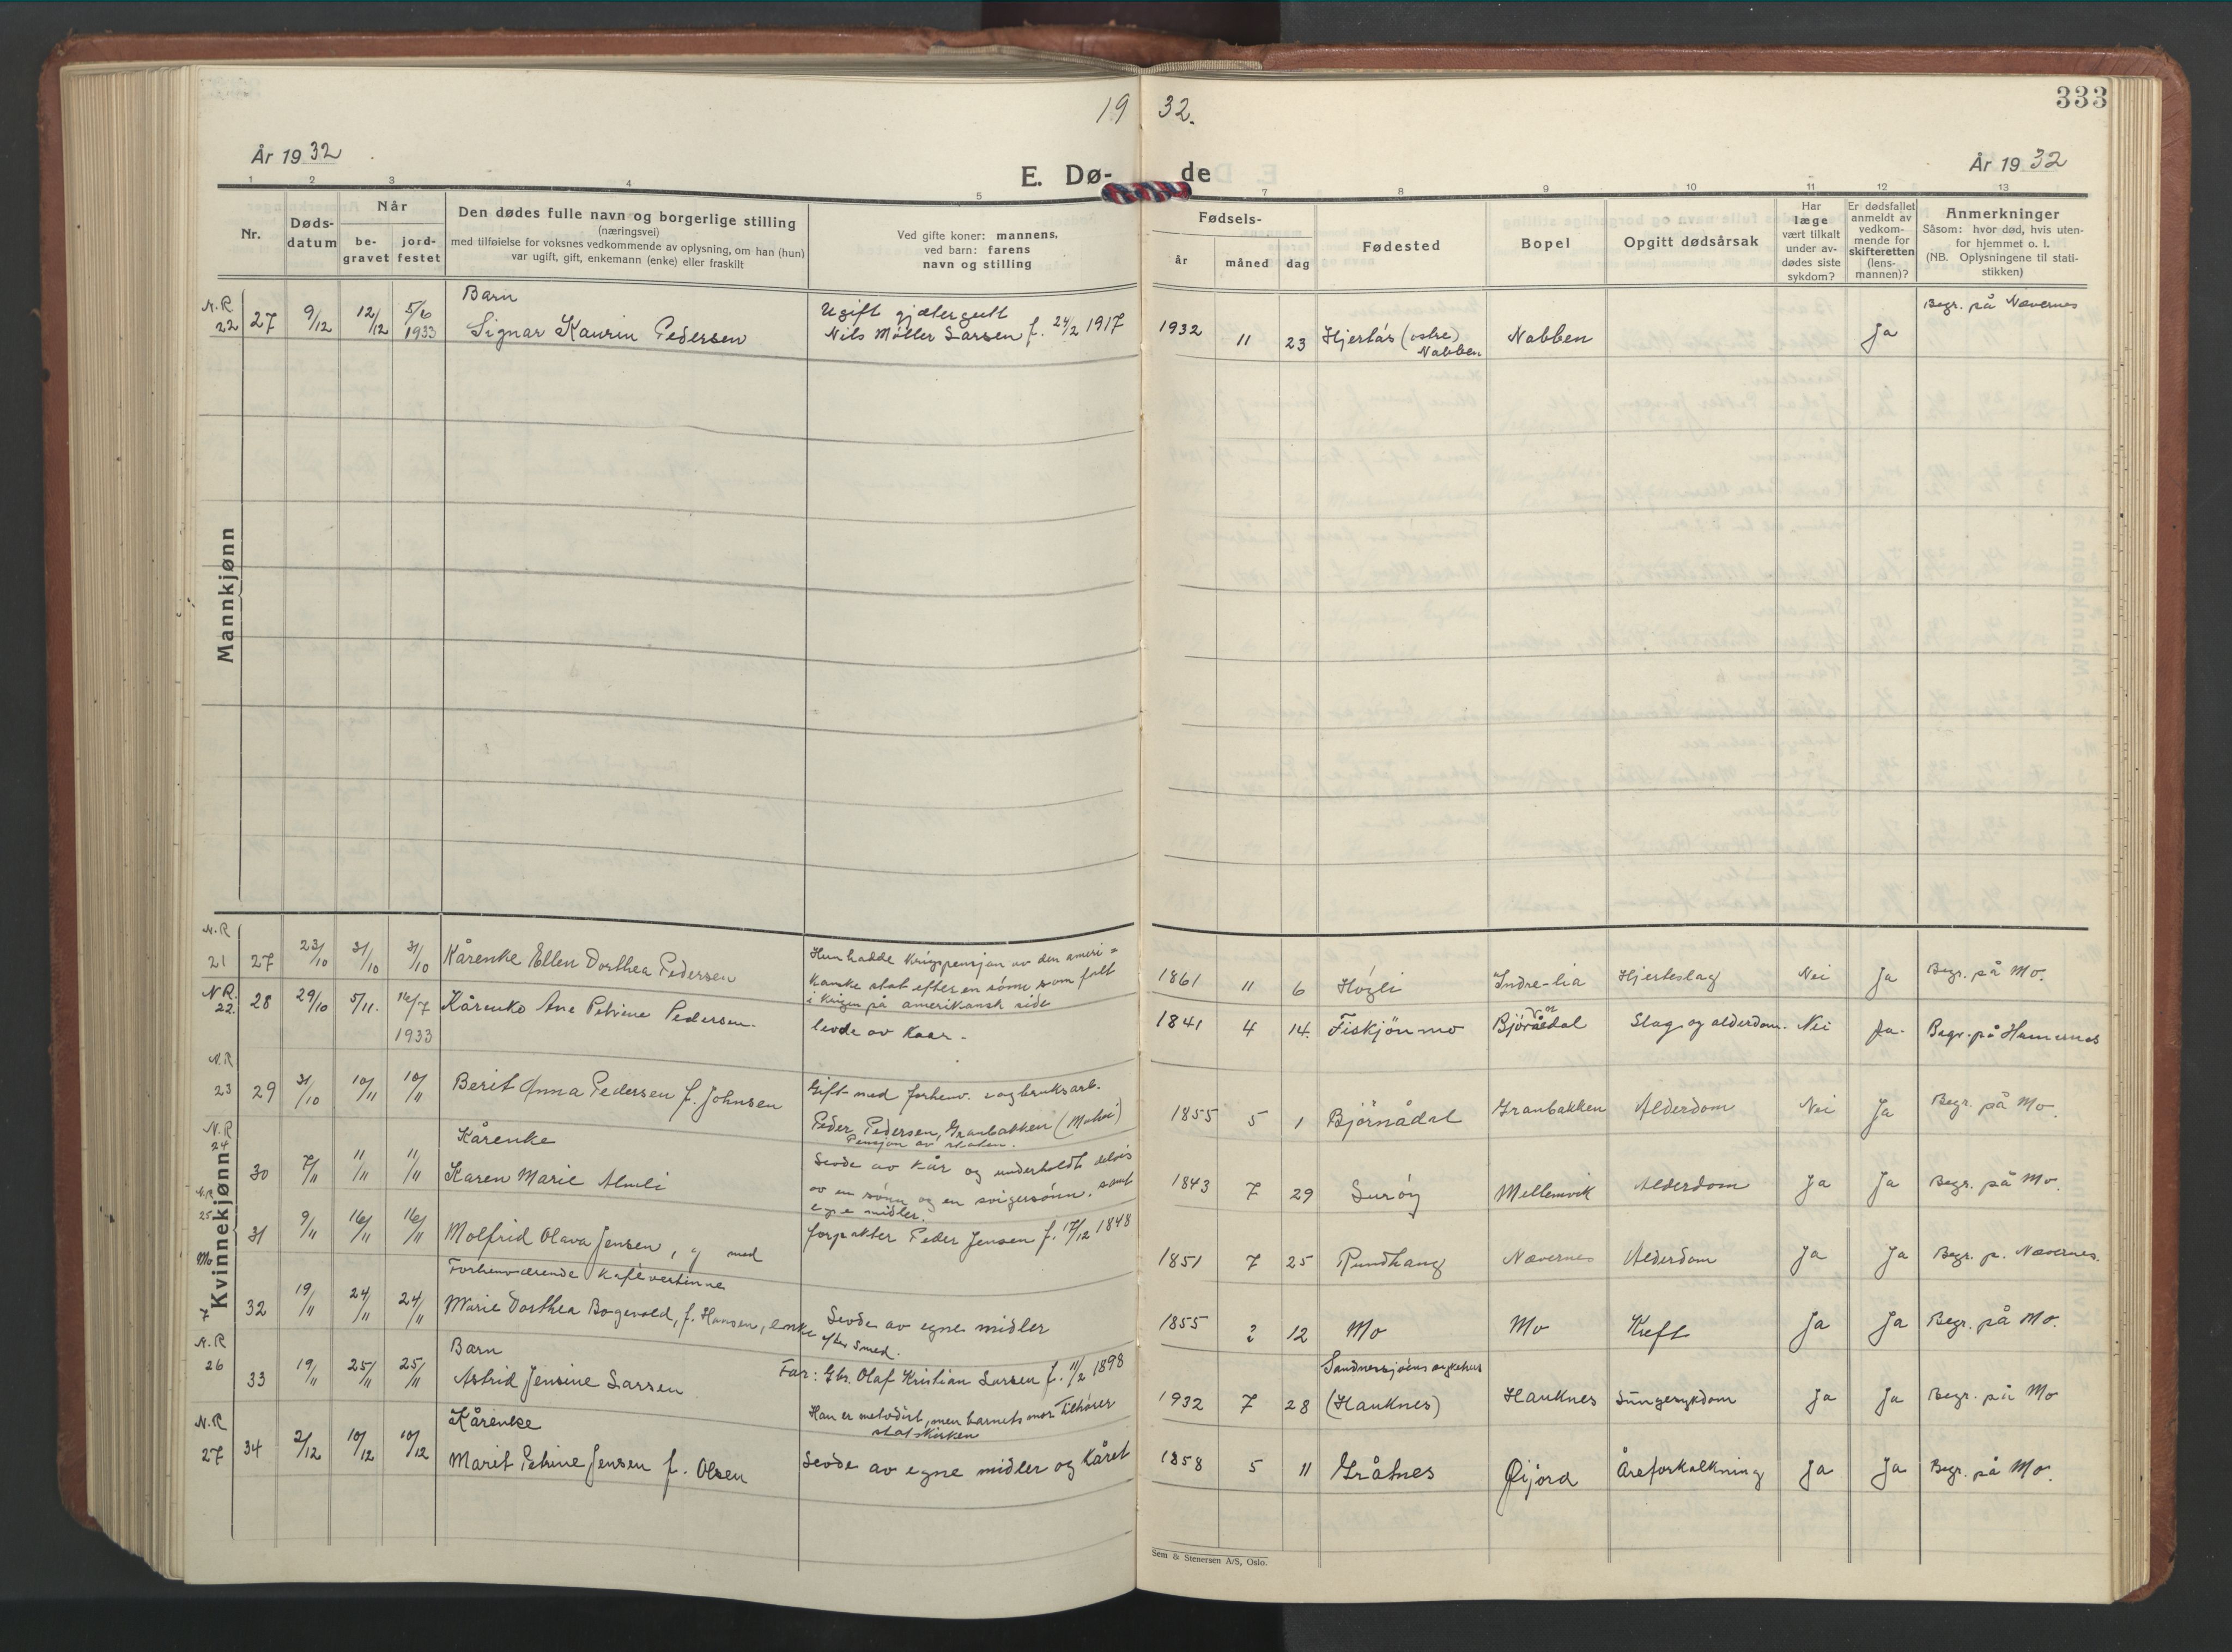 19 32.
333
År 1932
År 1932
E. Dø-
de
1 2 3 4 5 7 8 9 10 11 12 13
Nr.
Døds-
datum
Når
be-
gravet
jord-
festet
Den dødes fulle navn og borgerlige stilling
(næringsvei)
med tilføielse for voksnes vedkommende av oplysning, om han (hun)
var ugift, gift, enkemann (enke) eller fraskilt
Ved gifte koner: mannens,
ved barn: farens
navn og stilling
Fødsels-
år
måned
dag
Fødested
Bopel
Opgitt dødsårsak
Har
læge
vært tilkalt
under av-
dødes siste
sykdom?
Er dødsfallet
anmeldt av
vedkom-
mende for
skifteretten
(lens-
mannen)?
Anmerkninger
Såsom: hvor død, hvis uten-
for hjemmet o. l.
(NB. Oplysningene til stati-
stikken)
Mannkjønn
N.R Barn Ugift gjætergutt Begr. på Nævernes
22 27 9/12 12/12 5/6 1933 Signar Kaurin Pedersen Nils Møller Larsen f. 24/2 1917 1932 11 23 Hjertås (østre) Nabben Nabben Ja
Kvinnekjønn
N.R
21 27 23/10 31/10 31/10 Kårenke Ellen Dorthea Pedersen Hun hadde krigspensjon av den ameri=
kanske stat efter en sönn som falt
i krigen på amerikansk side
1861 11 6 Högli Indre-lia Hjerteslag Nei Ja Begr. på Mo.
N.R.
22. 28 29/10 5/11. 16/7 1933 Kårenke Ane Petrine Pedersen. levde av Kaar.
1841 4 14. Fiskjönmo Slag og alderdom. Nei Ja. Begr. på Hemernes
N.R
23 29 31/10 10/11 10/11 Berit Anna Pedersen f. Johnsen Gift med forhenv. sagbruksarb.
Peder Pedersen, Granbakken (Mohei)
Pensjon av staten.
1855 5 1 Björnådal Granbakken Alderdom Nei Ja Begr. på Mo.
N.R
24 Kårenke
30 7/11 11/11 11/11 Karen Marie Almli Levde av kår og underholdt delvis
av en sönn og en svigersönn, samt
egne midler.
1843 7 29 Suröy Mellemvik Alderdom Ja Ja Begr. på Mo.
N.R
25 31 9/11 16/11 16/11 Molfrid Olava Jensen, g med forpakter Peder Jensen f. 17/12 1848
1851 7 25 Rundhaug Nævernes Alderdom Ja Ja Begr. p. Nævernes.
Mo Forhenværende kafévertinne
7 32 19/11 24/11 24/11 Marie Dorthea Bogevold, f. Hansen, enke
efter smed.
Levde av egne midler
1855 2 12 Mo Mo Kreft Ja Ja Begr. på Mo.
N.R Barn
26 33 19/11 25/11 25/11 Astrid Jensine Larsen Far: Gbr. Olaf Kristian Larsen f. 11/2 1898
Han er metodist, men barnets mor tilhører
statskirken
Sandnessjöens sykehus
1932 7 28 (Hauknes) Hauknes Lungesykdom Ja Ja Begr. på Mo
N.R Kårenke
27 34 2/12 10/12 10/12 Marit Petrine Jensen f. Olsen Levde av egne midler og Kåret
1858 5 11 Gråtnes Øijord Åreforkalkning Ja Ja Begr. på Mo.
Sem & Stenersen A/S, Oslo.